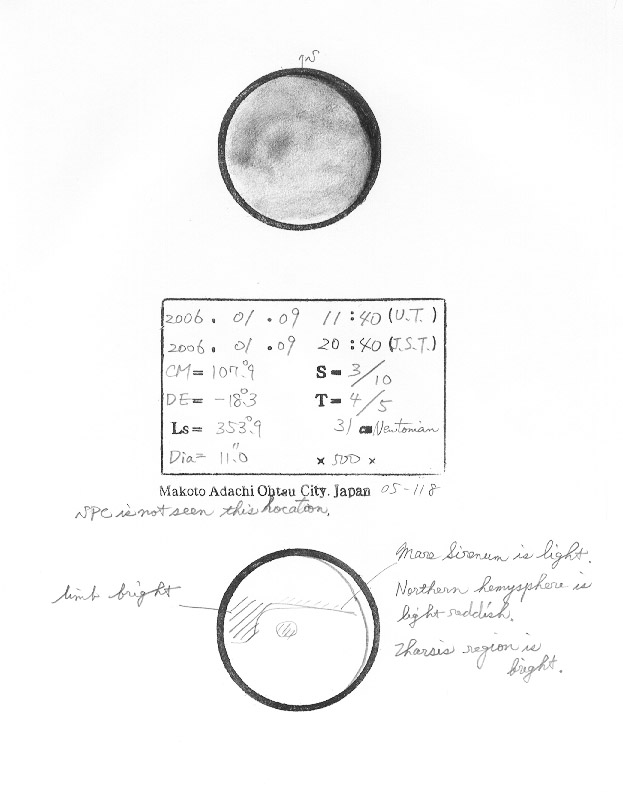 S
2006. 01. 09 11:40 (U.T.)
2006. 01. 09 20:40 (J.S.T.)
CM= 107.°9 S= 3/10
DE= -18.°3 T= 4/5
Ls= 353.°9 31 cm Newtonian
Dia= 11."0 × 500 ×
Makoto Adachi Ohtsu City. Japan 05-118
SPC is not seen this Location.
limb bright
Mare Sirenum is light.
Northern hemysphere is
light reddish.
Tharsis region is
bright.